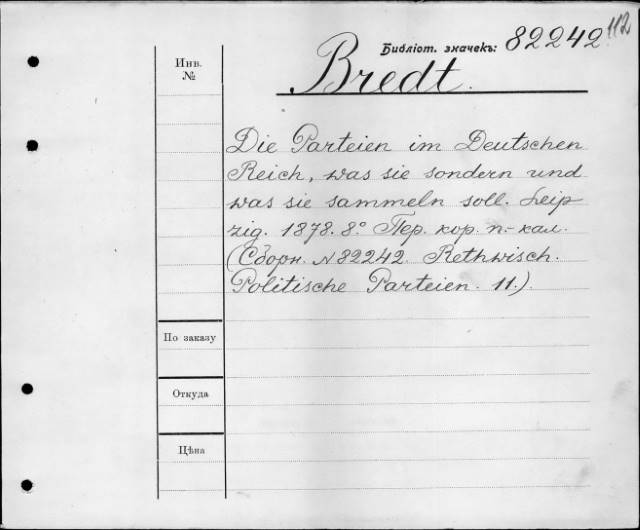 112
Библіот. значекъ: 82242
Bredt.
Инв.
№
Die Parteien im Deutschen
Reich, was sie sondern und
was sie sammeln soll. Leip
zig. 1878. 8° Пер. кор. п.-кал.
(Сборн. N 82242. Rethwisch.
Politische Parteien. 11.).
По заказу
Откуда
Цѣна